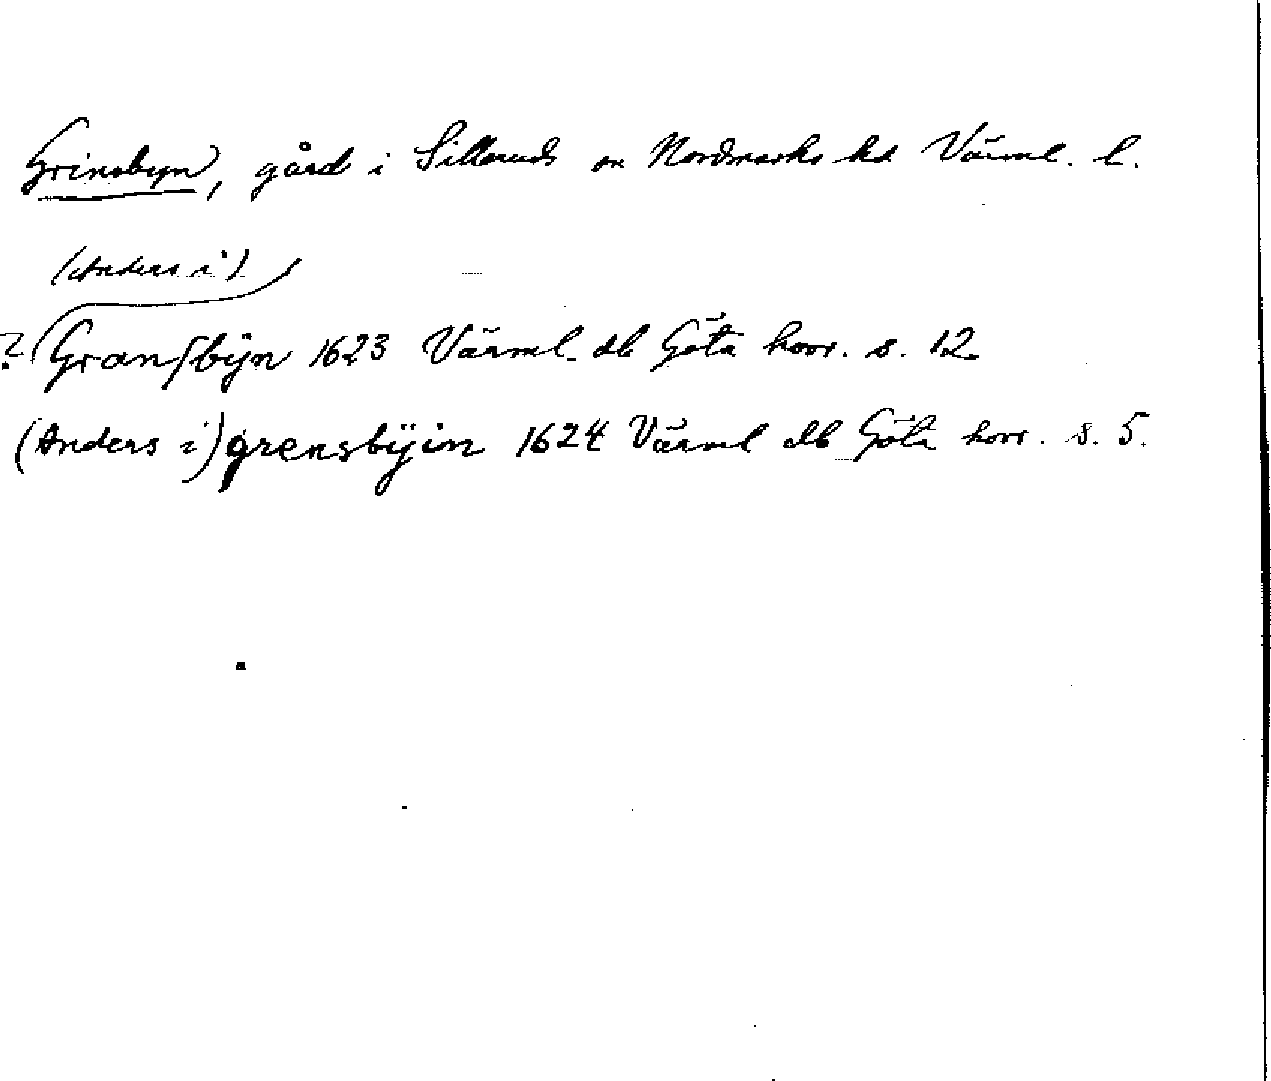 Grinsbyn, gård i Silleruds sn Nordmarks hd Värml. l.
(Anders i)
? Granſbÿn 1623 Värml. db Göta hovr. s. 12.
(Anders i) grensbÿin 1624 Värml db Göta hovr. s. 5.